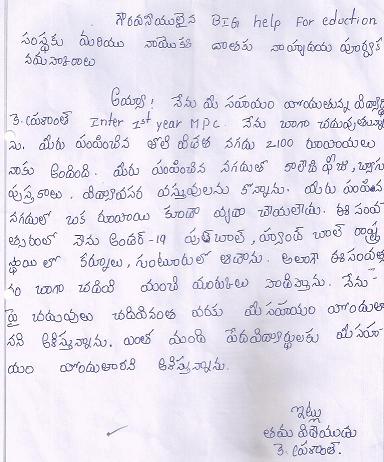 గౌరవనీయులైన BIG help For eduction
సంస్థకు మరియు నాయొక్క దాతకు నాహృదయ పూర్వక
నమస్కారాలు
అయ్యా! నేను మీ సహాయం పొందుతున్న విద్యార్థి
కె. ప్రశాంత్ Inter 1st year MPC. నేను బాగా చదువుతున్నా
ను. మీరు పంపించిన తొలి విడత నగదు 2100 రూపాయలు
నాకు అందింది. మీరు పంపించిన నగదుతో కాలేజి ఫీజు,
పుస్తకాలు, విద్యావసర వస్తువులను కొన్నాను. మీరు పంపిన
నగదులో ఒక రూపాయి కూడా వృథా చేయలేదు. ఈ సంవ
త్సరంలో నేను అండర్-19 ఫుట్ బాల్, హ్యాండ్ బాల్ రాష్ట్ర
స్థాయి లో కర్నూలు, గుంటూరులో ఆడాను. అలాగే ఈసంవత్స
రం బాగా చదివి మంచి మార్కులు సాధిస్తాను. నేను
పై చదువులు చదివినంత వరకు మీ సహాయం పొందుతా
నని ఆశిస్తున్నాను. ఎంత మంది పేదవిద్యార్థులకు మీ సహా
యం పొందుతారని ఆశిస్తున్నాను.
ఇట్లు
తమ విధేయుడు
కె. ప్రశాంత్.